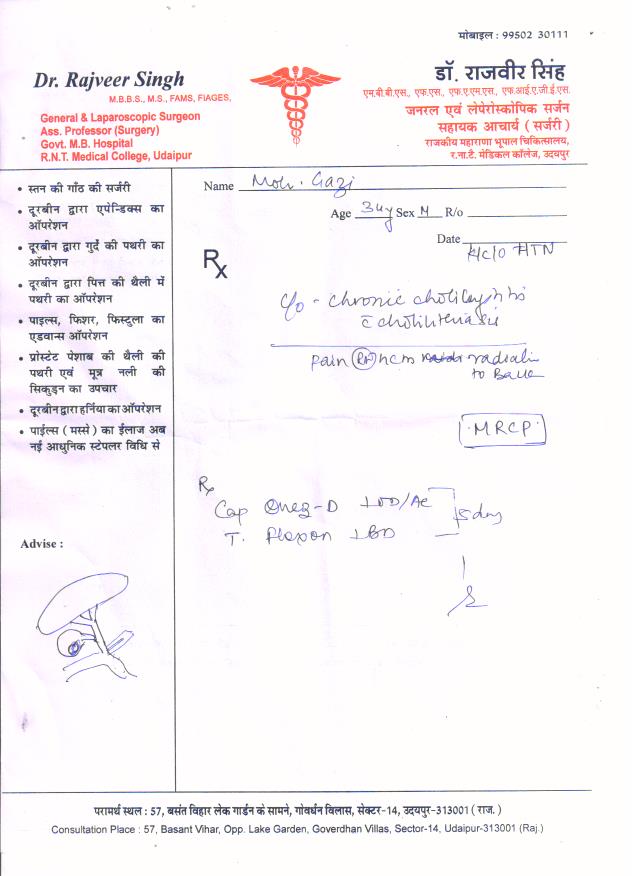 मोबाइल : 99502 30111
Dr. Rajveer Singh
M.B.B.S., M.S., FAMS, FIAGES,
General & Laparoscopic Surgeon
Ass. Professor (Surgery)
Govt. M.B. Hospital
R.N.T. Medical College, Udaipur
डॉ. राजवीर सिंह
एम.बी.बी.एस., एफ.एस., एफ.ए.एम.एस., एफ.आई.ए.जी.ई.एस.
जनरल एवं लेपेरोस्कोपिक सर्जन
सहायक आचार्य ( सर्जरी )
राजकीय महाराणा भूपाल चिकित्सालय,
र.ना.टे. मेडिकल कॉलेज, उदयपुर
• स्तन की गाँठ की सर्जरी
• दूरबीन द्वारा एपेन्डिक्स का
ऑपरेशन
• दूरबीन द्वारा गुर्दे की पथरी का
ऑपरेशन
• दूरबीन द्वारा पित्त की थैली में
पथरी का ऑपरेशन
• पाइल्स, फिशर, फिस्टुला का
एडवान्स ऑपरेशन
• प्रोस्टेट पेशाब की थैली की
पथरी एवं मूत्र नली की
सिकुड़न का उपचार
• दूरबीन द्वारा हर्निया का ऑपरेशन
• पाईल्स ( मस्से ) का ईलाज अब
नई आधुनिक स्टेपलर विधि से
Advise :
Name Moh. Gazi
Age 34y Sex M R/o
Date
H/C/O HTN
Rx
c/o - chronic
c̄
Pain (Rt) HCM
to Back
MRCP
Rx
Cap Omez-D 1 OD/AC
T. Flexon 1 BD
5 day
परामर्थ स्थल : 57, बसंत विहार लेक गार्डन के सामने, गोवर्धन विलास, सेक्टर-14, उदयपुर-313001 ( राज. )
Consultation Place : 57, Basant Vihar, Opp. Lake Garden, Goverdhan Villas, Sector-14, Udaipur-313001 (Raj.)